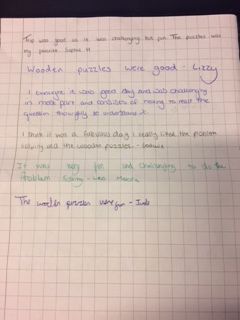 Trip was good as it was challenging but fun. The puzzles was
my favourite. Sophie H
Wooden puzzles were good - Lizzy
I it was good day and was challenging
in most part and consists of having to read the
question thoroughly to understand it.
I think it was a fabulous day I really liked the problem
solving and the wooden puzzles -
It was very fun and challenging to do the
Problem Solving -
The wooden puzzles were fun -